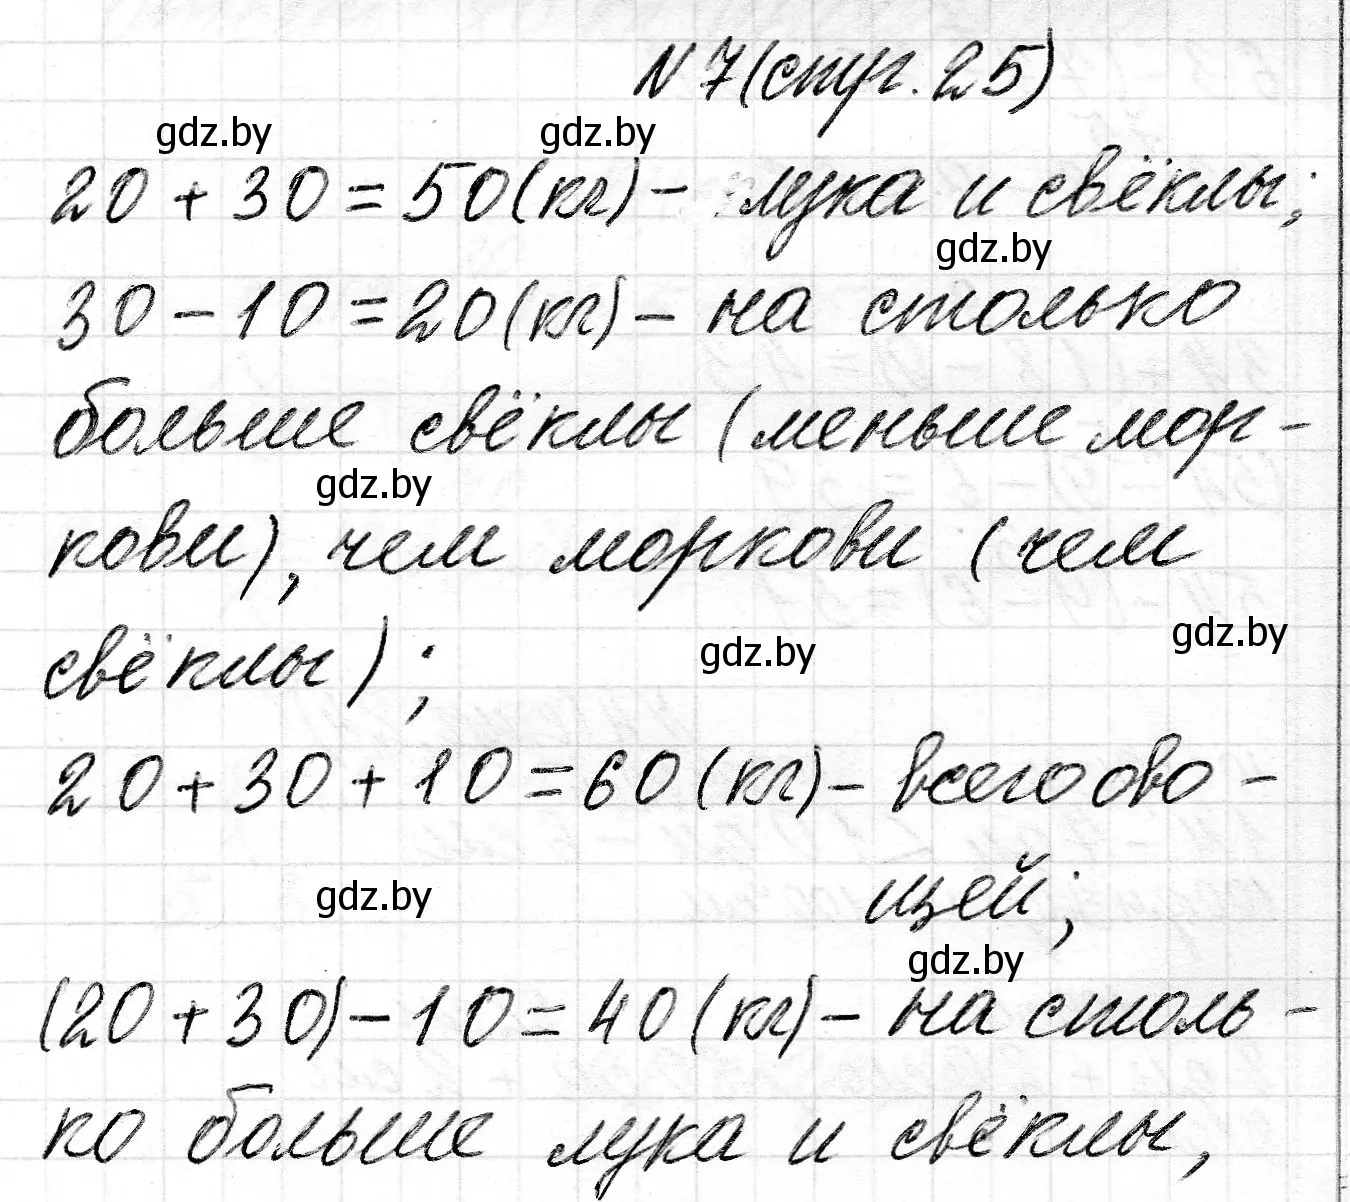 N 7 (стр. 25)
gdz.by gdz.by
20 + 30 = 50 (кг) - лука и свёклы;
gdz.by
30 - 10 = 20 (кг) - на столько
больше свёклы (меньше мор-
gdz.by
кови), чем моркови (чем
gdz.by gdz.by
свёклы);
20 + 30 + 10 = 60 (кг) - всего ово-
gdz.by
щей;
gdz.by
(20 + 30) - 10 = 40 (кг) - на столь-
ко больше лука и свёклы,